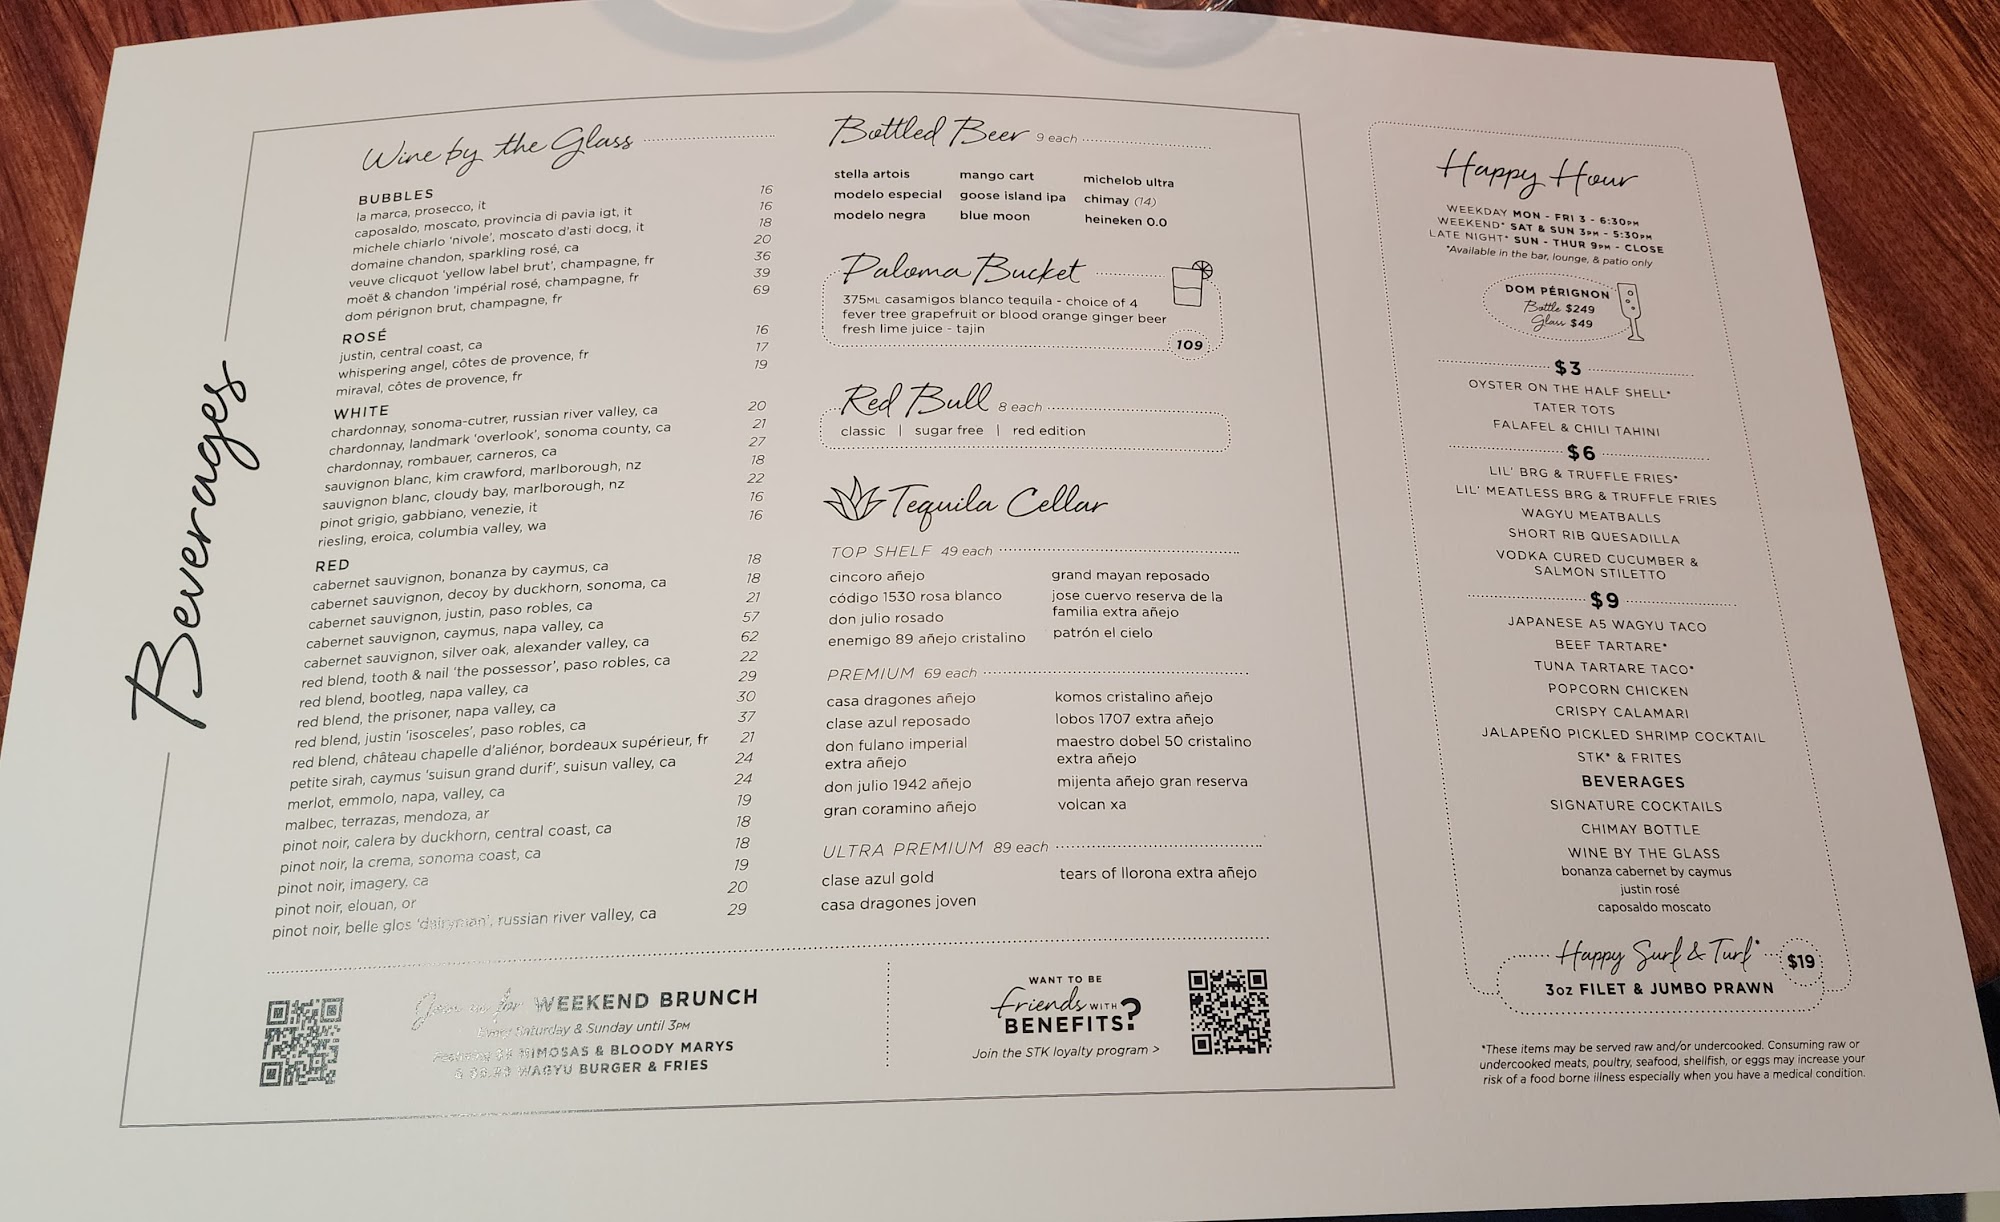 Beverages
Wine by the Glass
BUBBLES
la marca, prosecco, it 16
caposaldo, moscato, provincia di pavia igt, it 16
michele chiarlo 'nivole', moscato d'asti docg, it 18
domaine chandon, sparkling rosé, ca 20
veuve clicquot 'yellow label brut', champagne, fr 36
moët & chandon 'impérial rosé, champagne, fr 39
dom pérignon brut, champagne, fr 69
ROSÉ
justin, central coast, ca 16
whispering angel, côtes de provence, fr 17
miraval, côtes de provence, fr 19
WHITE
chardonnay, sonoma-cutrer, russian river valley, ca 20
chardonnay, landmark 'overlook', sonoma county, ca 21
chardonnay, rombauer, carneros, ca 27
sauvignon blanc, kim crawford, marlborough, nz 18
sauvignon blanc, cloudy bay, marlborough, nz 22
pinot grigio, gabbiano, venezie, it 16
riesling, eroica, columbia valley, wa 16
RED
cabernet sauvignon, bonanza by caymus, ca 18
cabernet sauvignon, decoy by duckhorn, sonoma, ca 18
cabernet sauvignon, justin, paso robles, ca 21
cabernet sauvignon, caymus, napa valley, ca 57
cabernet sauvignon, silver oak, alexander valley, ca 62
red blend, tooth & nail 'the possessor', paso robles, ca 22
red blend, bootleg, napa valley, ca 29
red blend, the prisoner, napa valley, ca 30
red blend, justin 'isosceles', paso robles, ca 37
red blend, château chapelle d'aliénor, bordeaux supérieur, fr 21
petite sirah, caymus 'suisun grand durif', suisun valley, ca 24
merlot, emmolo, napa, valley, ca 24
malbec, terrazas, mendoza, ar 19
pinot noir, calera by duckhorn, central coast, ca 18
pinot noir, la crema, sonoma coast, ca 18
pinot noir, imagery, ca 19
pinot noir, elouan, or 20
pinot noir, belle glos 'dairyman', russian river valley, ca 29
Bottled Beer 9 each
stella artois mango cart michelob ultra
modelo especial goose island ipa chimay (14)
modelo negra blue moon heineken 0.0
Paloma Bucket
375ML casamigos blanco tequila - choice of 4
fever tree grapefruit or blood orange ginger beer
fresh lime juice - tajin
109
Red Bull 8 each
classic | sugar free | red edition
Tequila Cellar
TOP SHELF 49 each
cincoro añejo
código 1530 rosa blanco
don julio rosado
enemigo 89 añejo cristalino
grand mayan reposado
jose cuervo reserva de la
familia extra añejo
patrón el cielo
PREMIUM 69 each
casa dragones añejo
clase azul reposado
don fulano imperial
extra añejo
don julio 1942 añejo
gran coramino añejo
komos cristalino añejo
lobos 1707 extra añejo
maestro dobel 50 cristalino
extra añejo
mijenta añejo gran reserva
volcan xa
ULTRA PREMIUM 89 each
clase azul gold
casa dragones joven
tears of llorona extra añejo
Join us for WEEKEND BRUNCH
Every Saturday & Sunday until 3PM
MIMOSAS & BLOODY MARYS
WAGYU BURGER & FRIES
WANT TO BE
friends WITH
BENEFITS?
Join the STK loyalty program >
Happy Hour
WEEKDAY MON - FRI 3 - 6:30PM
WEEKEND* SAT & SUN 3PM - 5:30PM
LATE NIGHT* SUN - THUR 9PM - CLOSE
*Available in the bar, lounge, & patio only
DOM PÉRIGNON
Bottle $249
Glass $49
$3
OYSTER ON THE HALF SHELL*
TATER TOTS
FALAFEL & CHILI TAHINI
$6
LIL' BRG & TRUFFLE FRIES*
LIL' MEATLESS BRG & TRUFFLE FRIES
WAGYU MEATBALLS
SHORT RIB QUESADILLA
VODKA CURED CUCUMBER &
SALMON STILETTO
$9
JAPANESE A5 WAGYU TACO
BEEF TARTARE*
TUNA TARTARE TACO*
POPCORN CHICKEN
CRISPY CALAMARI
JALAPEÑO PICKLED SHRIMP COCKTAIL
STK* & FRITES
BEVERAGES
SIGNATURE COCKTAILS
CHIMAY BOTTLE
WINE BY THE GLASS
bonanza cabernet by caymus
justin rosé
caposaldo moscato
Happy Surf & Turf* $19
3oz FILET & JUMBO PRAWN
*These items may be served raw and/or undercooked. Consuming raw or
undercooked meats, poultry, seafood, shellfish, or eggs may increase your
risk of a food borne illness especially when you have a medical condition.